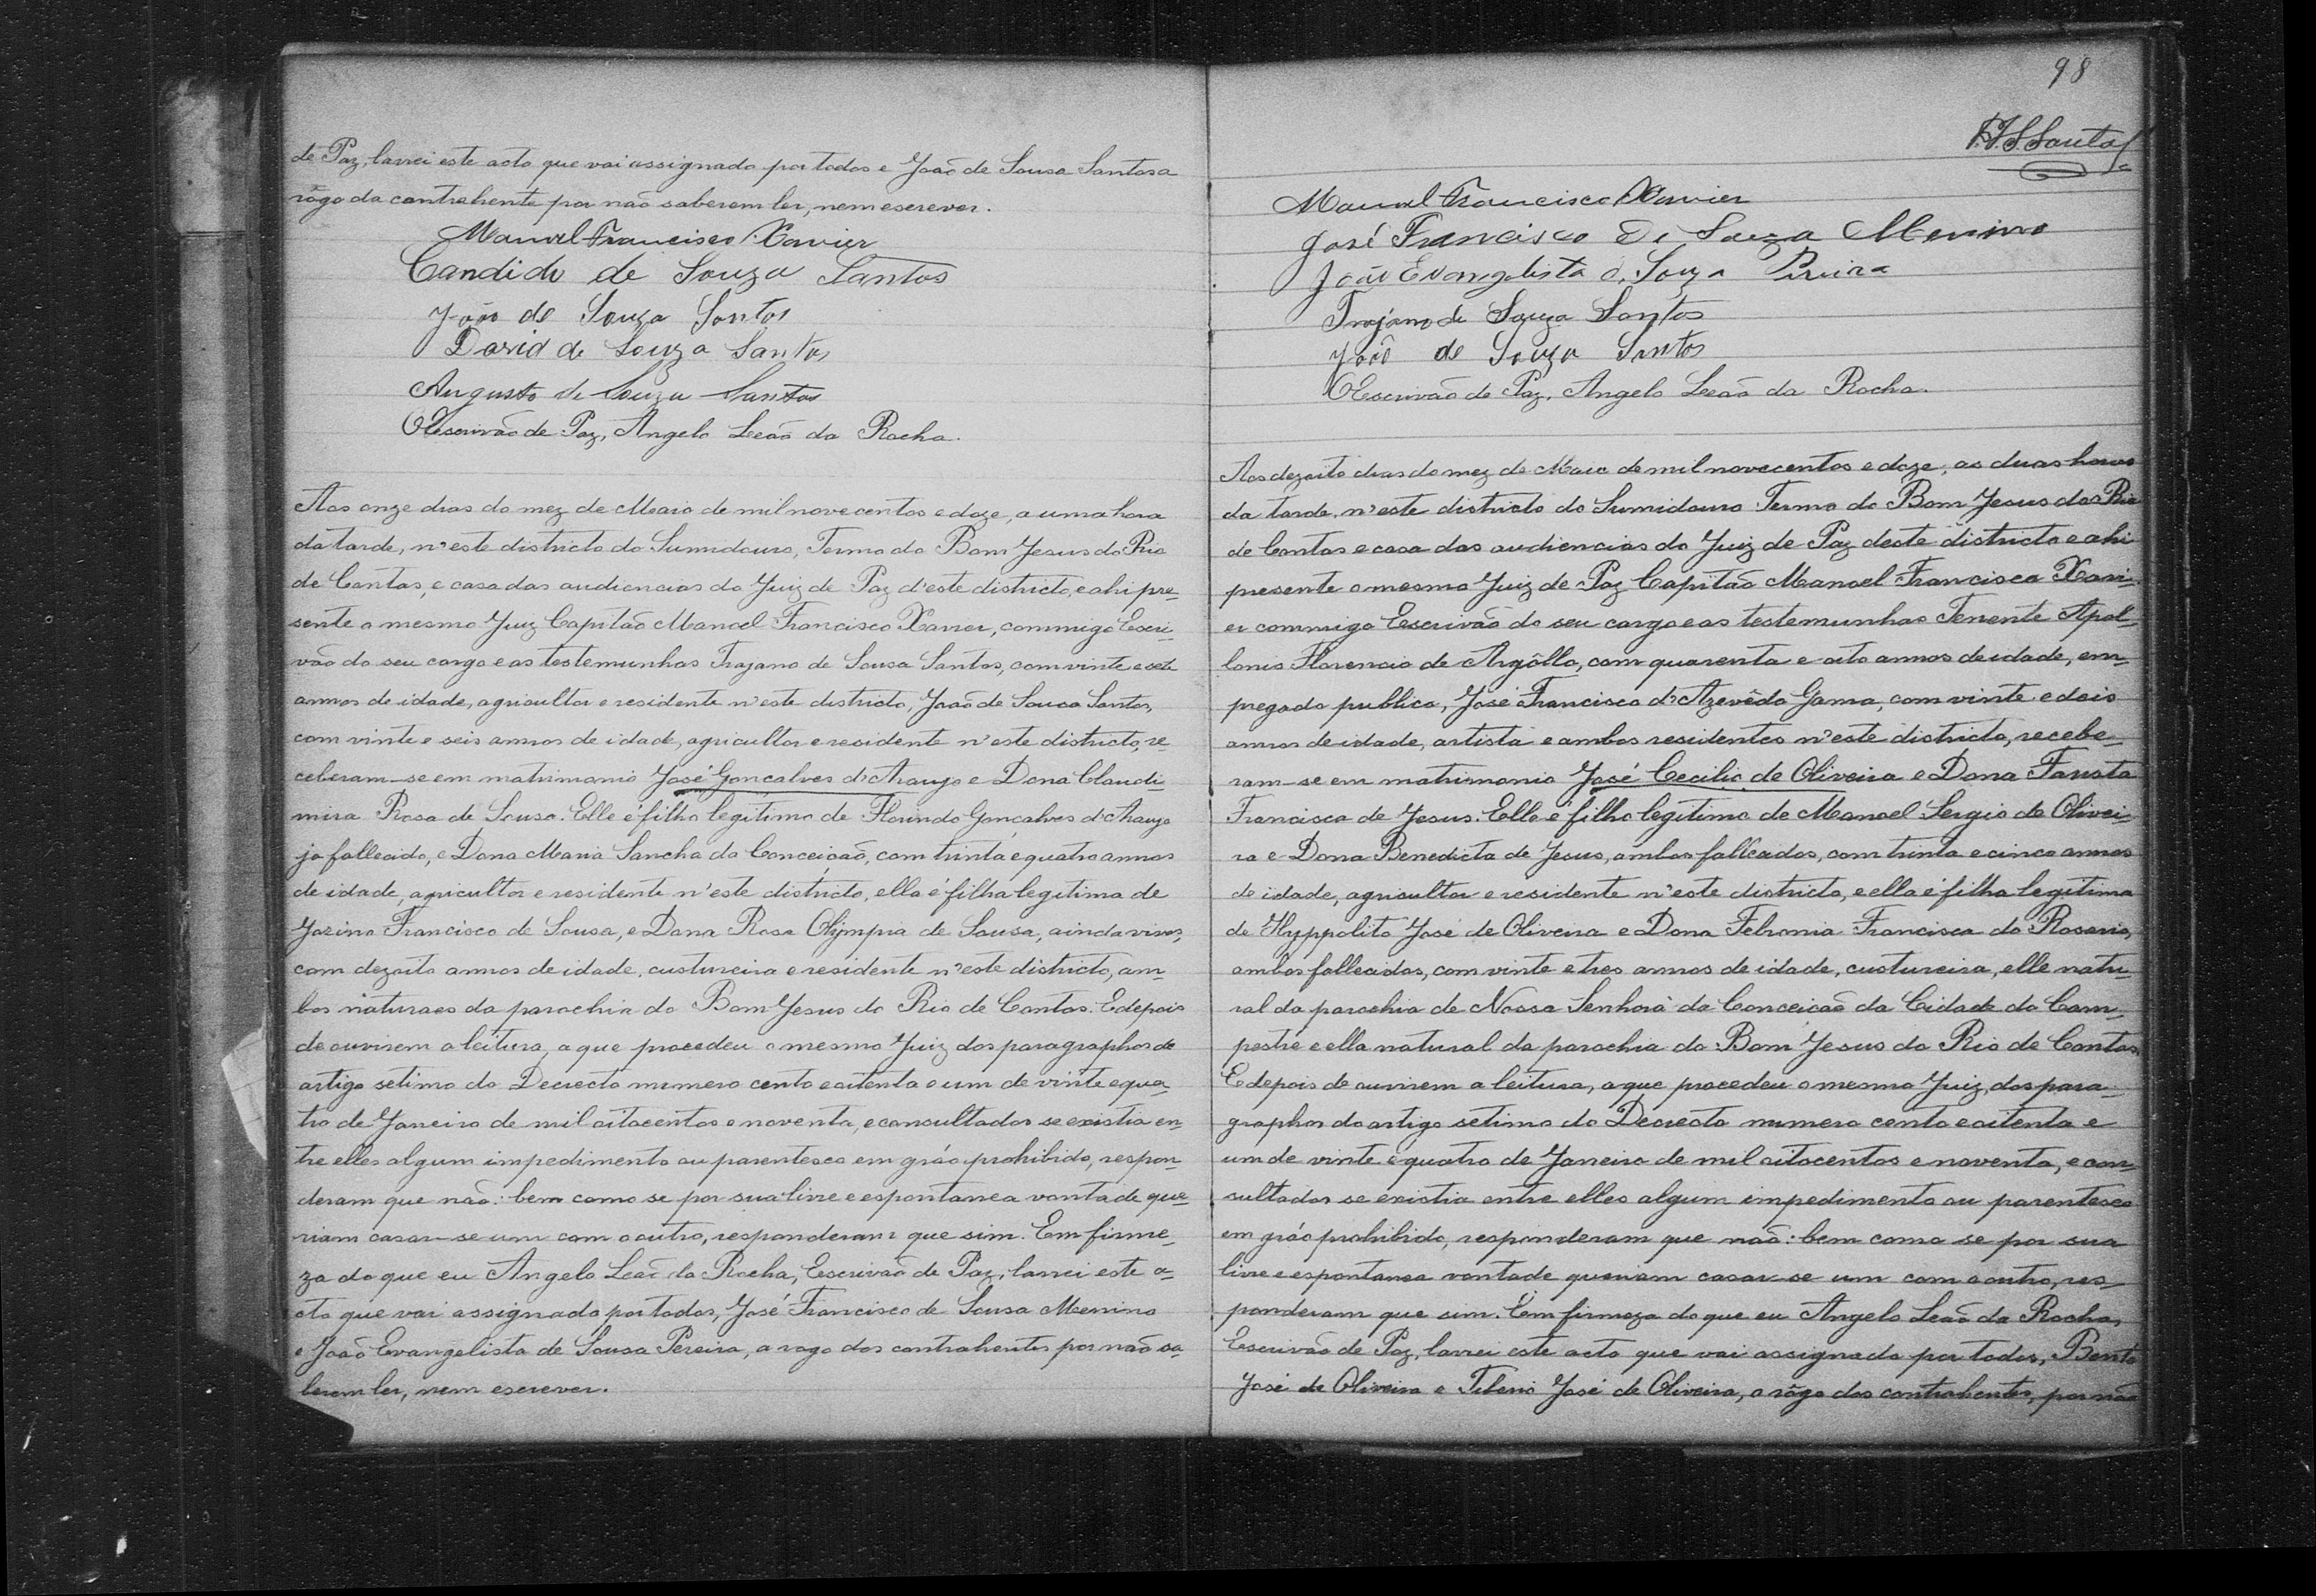 de Paz, lavrei este acto que vai assignado por todos e João de Sousa Santos a
rôgo da contrahente por não saberem ler, nem escrever.
Manoel Francisco Xavier
Candido de Souza Santos
João de Souza Santos
David de Souza Santos
Augusto de Souza Santos
O Escrivão de Paz, Angelo Leão da Rocha.
Aos onze dias do mez de Maio de mil novecentos e doze, a uma hora
da tarde, n'este districto do Sumidouro, Termo do Bom Jesus do Rio
de Contas, e casa das audiencias do Juiz de Paz d'este districto, e ahi pre-
sente o mesmo Juiz Capitão Manoel Francisco Xavier, commigo Escri-
vão do seu cargo e as testemunhas Trajano de Sousa Santos, com vinte e sete
annos de idade, agricultor e residente n'este districto, João de Sousa Santos,
com vinte e seis annos de idade, agricultor e residente n'este districto, re-
ceberam-se em matrimonio José Goncalves d'Araujo e Dona Claudi-
mira Rosa de Sousa. Elle é filho legitimo de Florindo Goncalves d'Araujo
já fallecido, e Dona Maria Sancha da Conceicão, com trinta e quatro annos
de idade, agricultor e residente n'este districto, ella é filha legitima de
Francisco de Sousa, e Dona Rosa Olympia de Sousa, ainda vivos,
com dezoito annos de idade, custureira e residente n'este districto, am-
bos naturaes da parochia do Bom Jesus do Rio de Contas. E depois
de ouvirem a leitura, a que procedeu o mesmo Juiz dos paragraphos do
artigo setimo do Decrecto numero cento e oitenta e um de vinte e qua-
tro de Janeiro de mil oitocentos e noventa, e consultados se existia en-
tre elles algum impedimento ou parentesco em gráo prohibido, respon-
deram que não: bem como se por sua livre e espontanea vontade que-
riam casar-se um com o outro, responderam que sim. Em firme-
za do que eu Angelo Leão da Rocha, Escrivão de Paz, lavrei este a-
cto que vai assignado por todos, José Francisco de Sousa Menino
e João Evangelista de Sousa Pereira, a rogo dos contrahentes por não sa-
berem ler, nem escrever.
98
Santos
Manoel Francisco Xavier
José Francisco de Souza Menino
João Evangelista d. Souza Pireira
Trajano de Souza Santos
João de Souza Santos
O Escrivão de Paz, Angelo Leão da Rocha.
Aos dezoito dias do mez de Maio de mil novecentos e doze, as duas horas
da tarde, n'este districto do Sumidouro Termo do Bom Jesus do Rio
de Contas e casa das audiencias do Juiz de Paz deste districto e ahi
presente o mesmo Juiz de Paz Capitão Manoel Francisco Xavi-
er commigo Escrivão do seu cargo e as testemunhas Tenente Apol-
lonio Florencio de Argôllo, com quarenta e oito annos de idade, em-
pregado publico, José Francisco d'Azevêdo Gama, com vinte e dois
annos de idade, artista e ambos residentes n'este districto, recebe-
ram-se em matrimonio José Cecilio de Oliveira e Dona Fausta
Francisca de Jesus. Elle é filho legitimo de Manoel Sergio de Olivei-
ra e Dona Benedicta de Jesus, ambos fallecidos, com trinta e cinco annos
de idade, agricultor e residente n'este districto, e ella é filha legitima
de Hyppolito José de Oliveira e Dona Francisca do Rosario,
ambos fallecidos, com vinte e tres annos de idade, custureira, elle natu-
ral da parochia de Nossa Senhora da Conceicão da Cidade do Cam-
pestre e ella natural da parochia do Bom Jesus do Rio de Contas.
E depois de ouvirem a leitura, a que procedeu o mesmo Juiz, dos para-
graphos do artigo setimo do Decrecto numero cento e oitenta e
um de vinte e quatro de Janeiro de mil oitocentos e noventa, e con-
sultados se existia entre elles algum impedimento ou parentesco
em gráo prohibido, responderam que não: bem como se por sua
livre e espontanea vontade queriam casar-se um com o outro, res-
ponderam que sim. Em firmeza do que eu Angelo Leão da Rocha,
Escrivão de Paz, lavrei este acto que vai assignado por todos, Bento
José de Oliveira e Tiberio José de Oliveira, a rôgo dos contrahentes, por não